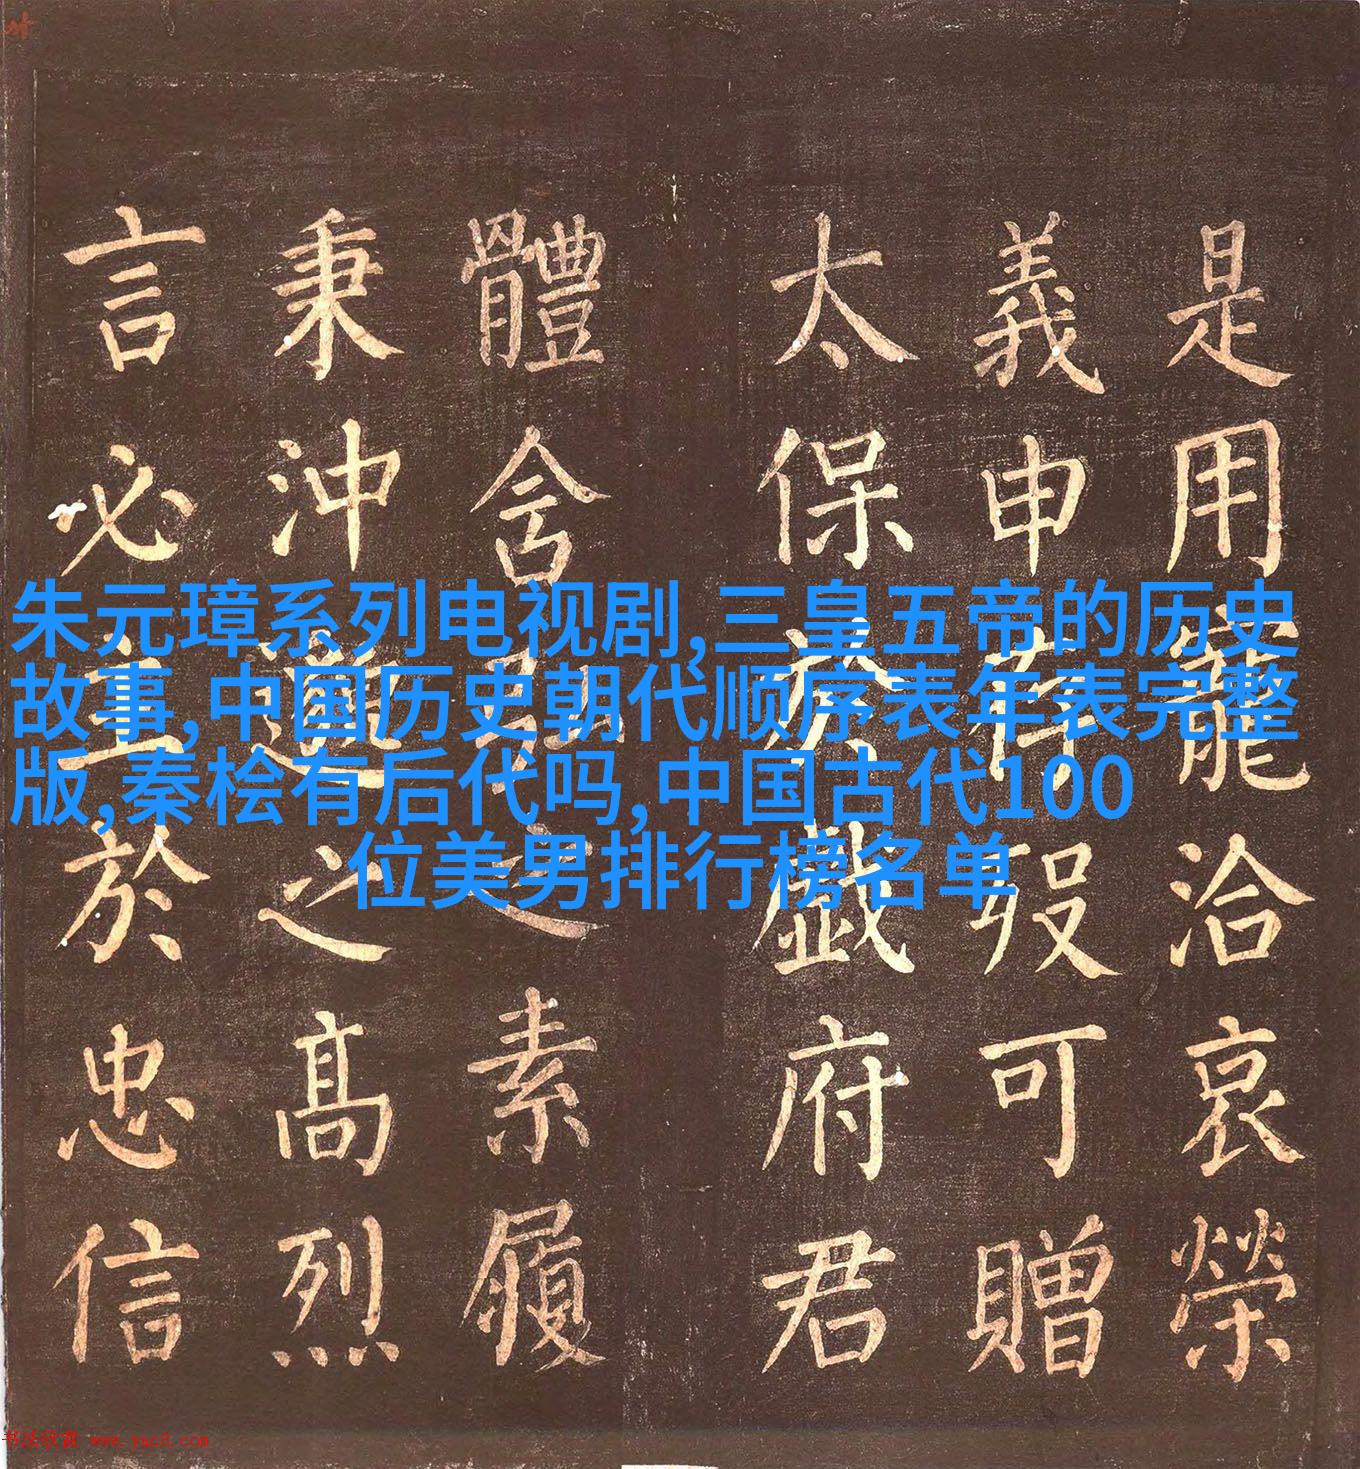 是用寵洽哀榮
義申存歿可贈
太保於戲府君
體含弘之素履
秉沖邈之髙烈
言必主於忠信
朱元璋系列电视剧,三皇五帝的历史
故事,中国历史朝代顺序表年表完整
版,秦桧有后代吗,中国古代100
位美男排行榜名单
书法欣赏 www.yac8.com